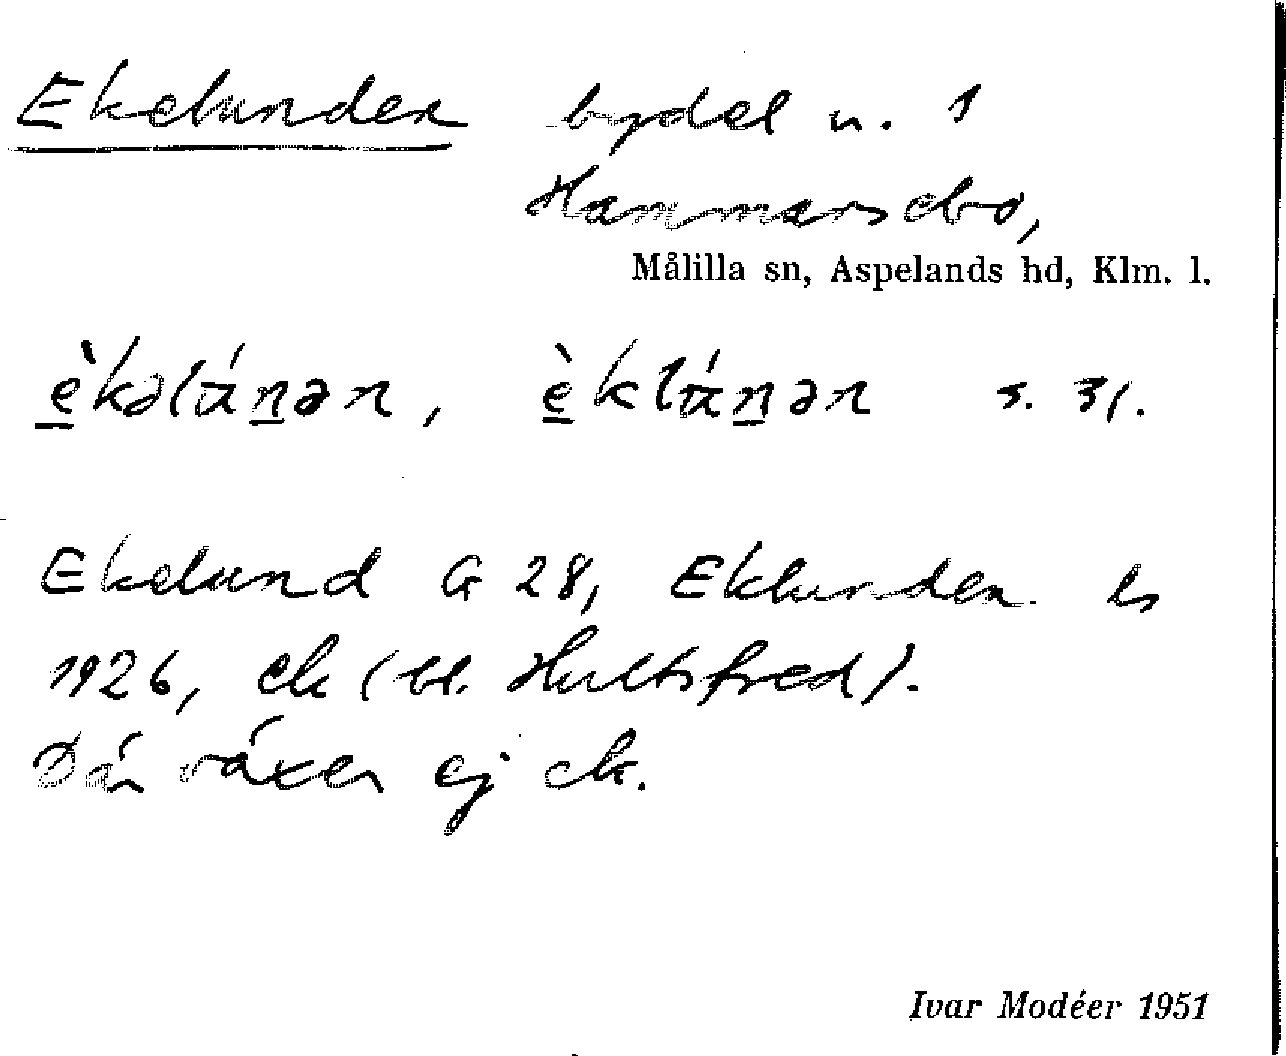 Ekelunden bydel u. 1
Hammarsebo,
Målilla sn, Aspelands hd, Klm. l.
èkəlánən, èklánən s. 31.
Ekelund G 28, Eklunden
1926, ek (bl. Hultsfred).
Där växer ej ek.
Ivar Modéer 1951